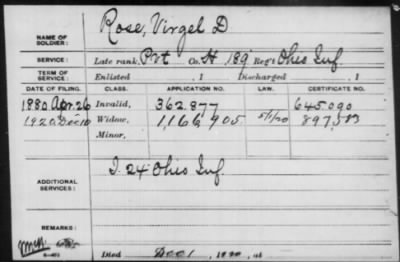 NAME OF SOLDIER: Rose, Virgel D
SERVICE: Late rank, Pvt Co. H 189 Reg't Ohio Inf.
TERM OF SERVICE: Enlisted , 1 Discharged , 1
DATE OF FILING. CLASS. APPLICATION NO. LAW. CERTIFICATE NO.
1880 Apr. 26 Invalid, 362.877 645.090
1920 Dec 10 Widow, 1,166,905 5/1/20 897,583
Minor,
ADDITIONAL SERVICES: I. 24 Ohio Inf.
REMARKS:
Died Dec 1, 1920, at